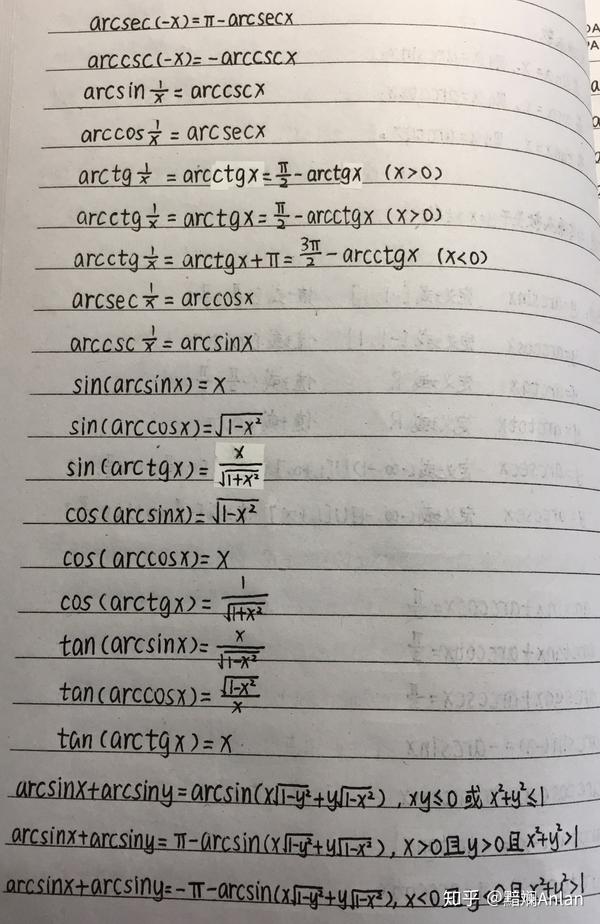 arcsec(-x)=π-arcsecx
arccsc(-x)=-arccscx
arcsin 1/x = arccscx
arccos 1/x = arcsecx
arctg 1/x = arcctgx = π/2 - arctgx (x>0)
arcctg 1/x = arctgx = π/2 - arcctgx (x>0)
arcctg 1/x = arctgx+π = 3π/2 - arcctgx (x<0)
arcsec 1/x = arccosx
arccsc 1/x = arcsinx
sin(arcsinx)=x
sin(arccosx)=√(1-x²)
sin(arctgx)= x/√(1+x²)
cos(arcsinx)=√(1-x²)
cos(arccosx)=x
cos(arctgx)= 1/√(1+x²)
tan(arcsinx)= x/√(1-x²)
tan(arccosx)= √(1-x²)/x
tan(arctgx)=x
arcsinx+arcsiny=arcsin(x√(1-y²)+y√(1-x²)), xy≤0 或 x²+y²≤1
arcsinx+arcsiny=π-arcsin(x√(1-y²)+y√(1-x²)), x>0且y>0且x²+y²>1
arcsinx+arcsiny=-π-arcsin(x√(1-y²)+y√(1-x²)), x<0且y<0且x²+y²>1
知乎 @黯斓Ahlan